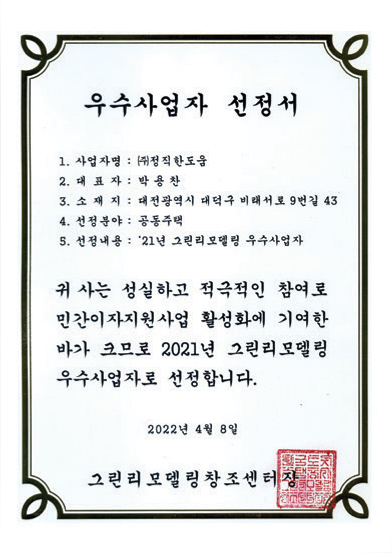 우수사업자 선정서
1. 사업자명 : ㈜정직한도움
2. 대 표 자 : 박용찬
3. 소 재 지 : 대전광역시 대덕구 비래서로 9번길 43
4. 선정분야 : 공동주택
5. 선정내용 : '21년 그린리모델링 우수사업자
귀 사는 성실하고 적극적인 참여로
민간이자지원사업 활성화에 기여한
바가 크므로 2021년 그린리모델링
우수사업자로 선정합니다.
2022년 4월 8일
그린리모델링창조센터장